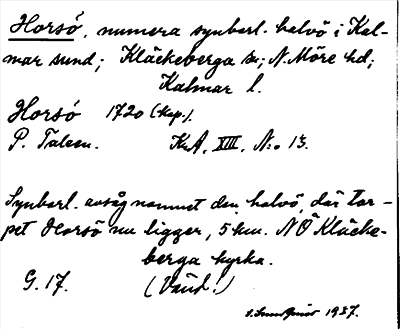 Horsö, numera synbarl. halvö i Kal-
mar sund; Kläckeberga sn; N. Möre hd;
Kalmar l.
Horsö 1720 (kop.).
P. Talem. KrA. XIII, N:o 13.
Synbarl. avsåg namnet den halvö, där tor-
pet Horsö nu ligger, 5 km. NÖ Kläcke-
berga kyrka.
G. 17. (Vänd!)
1937.